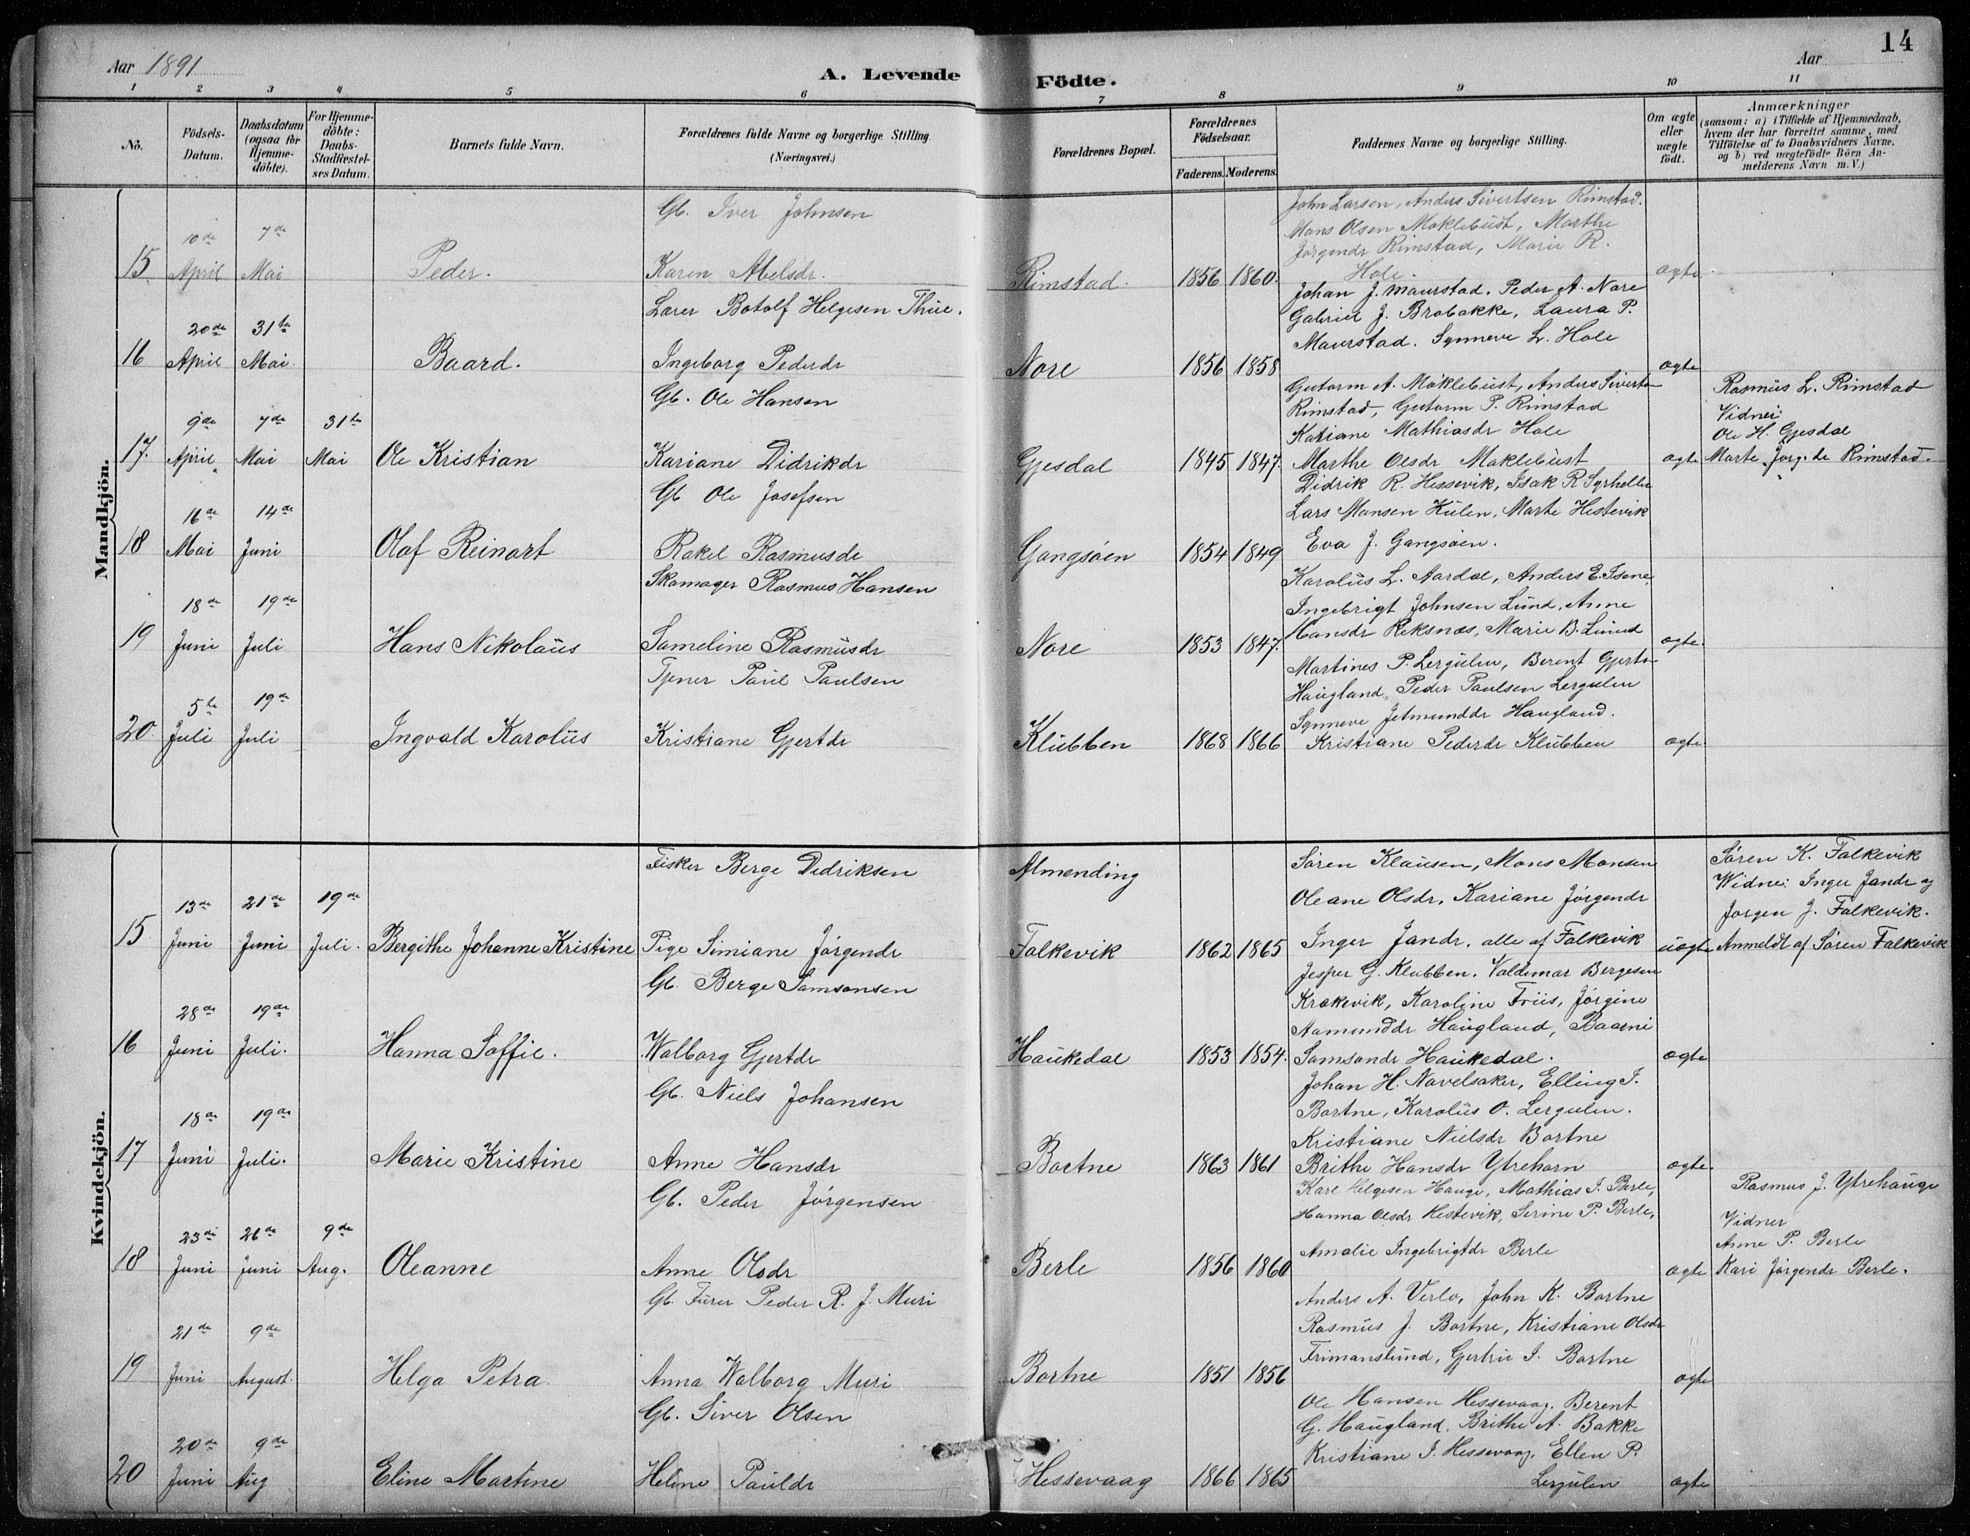 Aar 1891
A. Levende Födte.
Aar
14
1 2 3 4 5 6 7 8 9 10 11
No.
Födsels-Datum.
Daabsdatum (ogsaa for Hjemme-döbte).
For Hjemme-döbte: Daabs-Stadfæstel-ses Datum.
Barnets fulde Navn.
Forældrenes fulde Navne og borgerlige Stilling.
(Næringsvei.)
Forældrenes Bopæl.
Forældrenes Födselsaar.
Faderens. Moderens.
Faddernes Navne og borgerlige Stilling.
Om ægte eller uægte födt.
Anmærkninger
(saasom: a) i Tilfælde af Hjemmedaab,
hvem der har forrettet samme, med
Tilföielse af to Daabsvidners Navne,
og b) ved uægtefödte Börn An-
melderens Navn m. V.)
Mandkjön.
Gb. Iver Johnsen
John Larsen, Anders Sivertsen Rimstad.
Hans Olsen Moklebust, Marthe
10de 7de
Jørgendr Rimstad, Marie R.
Hole.
15 April Mai Peder. Karen Abelsdr. Rimstad. 1856 1860. ægte
Lærer Botolf Helgesen Thue.
Johan J. Maurstad. Peder A. Nore
Gabriel J. Brobakke, Laura P.
20de 31te
Maurstad. Synneve L. Hole
16 April Mai. Baard. Ingeborg Pederdr Nore 1856 1858 ægte
Gb. Ole Hansen
Gutorm A. Moklebust, Anders Siverts
Rimstad, Gutorm P. Rimstad
Rasmus L. Rimstad
Vidner:
9de 7de 31te
Kariane Mathiasdr Hole
Ole H. Gjesdal
17. April Mai Mai Ole Kristian Kariane Didrikdr Gjesdal 1845 1847. Marthe Olsdr Moklebust ægte Marte Jørg.dr Rimstad.
Gb Ole Josefsen
Didrik R. Hessevik, Isak R
Lars Monsen Hulen, Marte Hestevik
16de 14de
18 Mai Juni Olaf Reinart Rakel Rasmusdr Gangsøen 1854 1849 Eva J. Gangsøen.
Skomager Rasmus Hansen
Karolus L. Aardal, Anders E. Isene
Ingebrigt Johnsen Lund, Anne
18de 19de
19 Juni Juli Hans Nikolaus Sameline Rasmusdr Nore 1853 1847. Hansdr Reksnæs, Marie B. Lund ægte.
Tjener Paul Paulsen
Martines P. Lergulen, Berent Gjerts
Haugland, Peder Paulsen Lergulen
5te 19de
Synneve Jetmunddr Haugland.
20 Juli Juli Ingvald Karolus Kristiane Gjertdr Klubben 1868 1866 Kristiane Pederdr Klubben ægte
Kvindekjön.
Fisker Berge Didriksen Almending
Søren Klausen, Mons Monsen
Søren K. Falkevik
Oleane Olsdr, Kariane Jørgendr
Widne: Inger Jandr og
13de 21de 19de
Jørgen J. Falkevik.
15 Juni Juni Juli. Bergithe Johanne Kristine Pige Simiane Jørgendr Falkevik 1862 1865 Inger Jandr. alle af Falkevik uægte Anmeldt af Søren Falkevik
Gb. Berge Samsonsen
Jesper G. Klubben, Valdemar Bergesen
Krakevik, Karoline Friis, Jørgine
28de 19de
Aamunddr Haugland, Baarni
16 Juni Juli. Hanna Soffie. Walborg Gjertdr Haukedal 1853 1854. Samsondr Haukedal. ægte
Gb. Niels Johansen
Johan H. Navelsaker, Elling I.
Bortne, Karolus O. Lergulen.
18de 19de
Kristiane Nielsdr Bortne
17 Juni Juli. Marie Kristine Anne Hansdr Bortne 1863 1861 Brithe Hansdr Ytrehorn ægte.
Gb. Peder Jørgensen
Karl Helgesen Hauge, Mathias I. Berle,
Rasmus J. Ytrehauge
Hanna Olsdr Hestevik, Serine P. Berle,
Vidner
23de 26de 9de
Anne P. Berle
18 Juni Juni Aug. Oleanne Anne Olsdr Berle 1856 1860 Amalie Ingebrigtdr Berle ægte Kari Jørgendr Berle.
Gb. Furer Peder R. J. Muri
Anders A. Verlo, John K. Bortne
Rasmus J. Bortne, Kristiane Olsdr
21de 9de
Frimanslund, Gjertrie I. Bortne
19 Juni August. Helga Petra. Anna Walborg Muri Bortne 1851 1856 ægte
Gb. Siver Olsen
Ole Hansen Hessevaag, Berent
G. Haugland, Brithe A. Bakke
20de 9de
Kristiane I. Hessevaag, Ellen P.
20 Juni Aug Eline Martine Heline Pauldr Hessevaag 1866 1865 Lergulen ægte